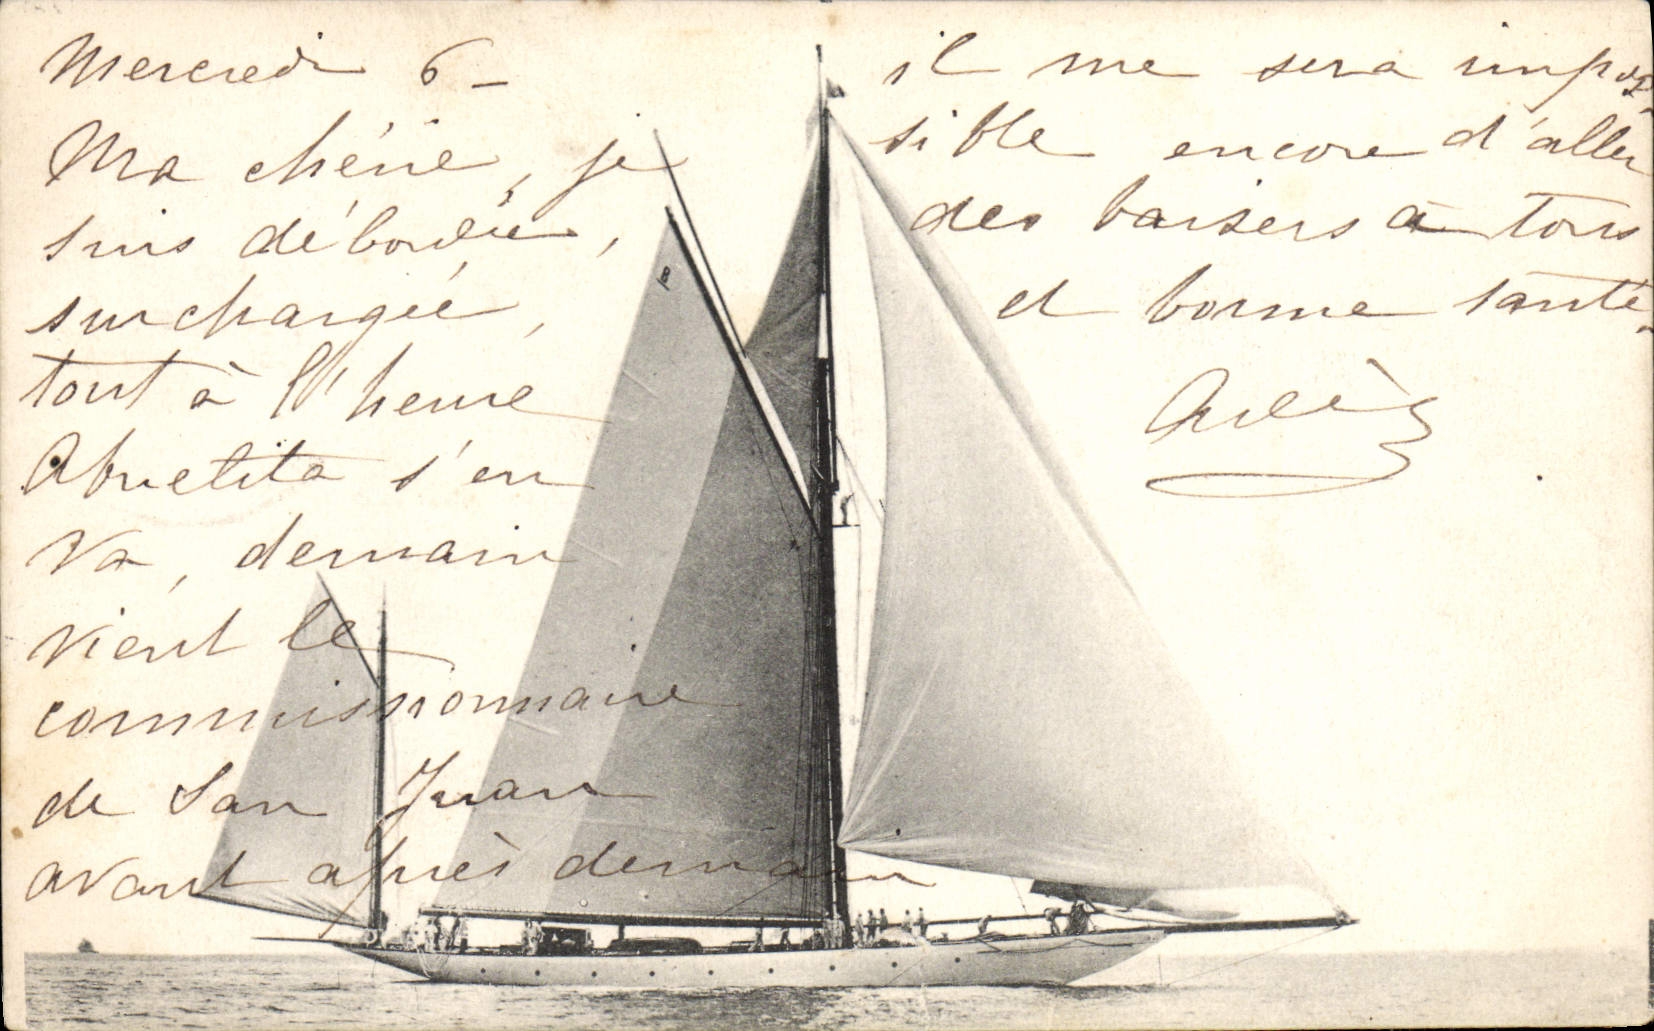 Mercredi 6 –
Ma chérie, je
suis débordée,
surchargée,
tout à l'heure
Abuelita s'en
va, demain
vient le
commissionnaire
de San Juan
avant après demain
il me sera impos-
sible encore d'aller
des baisers à tous
et bonne santé.